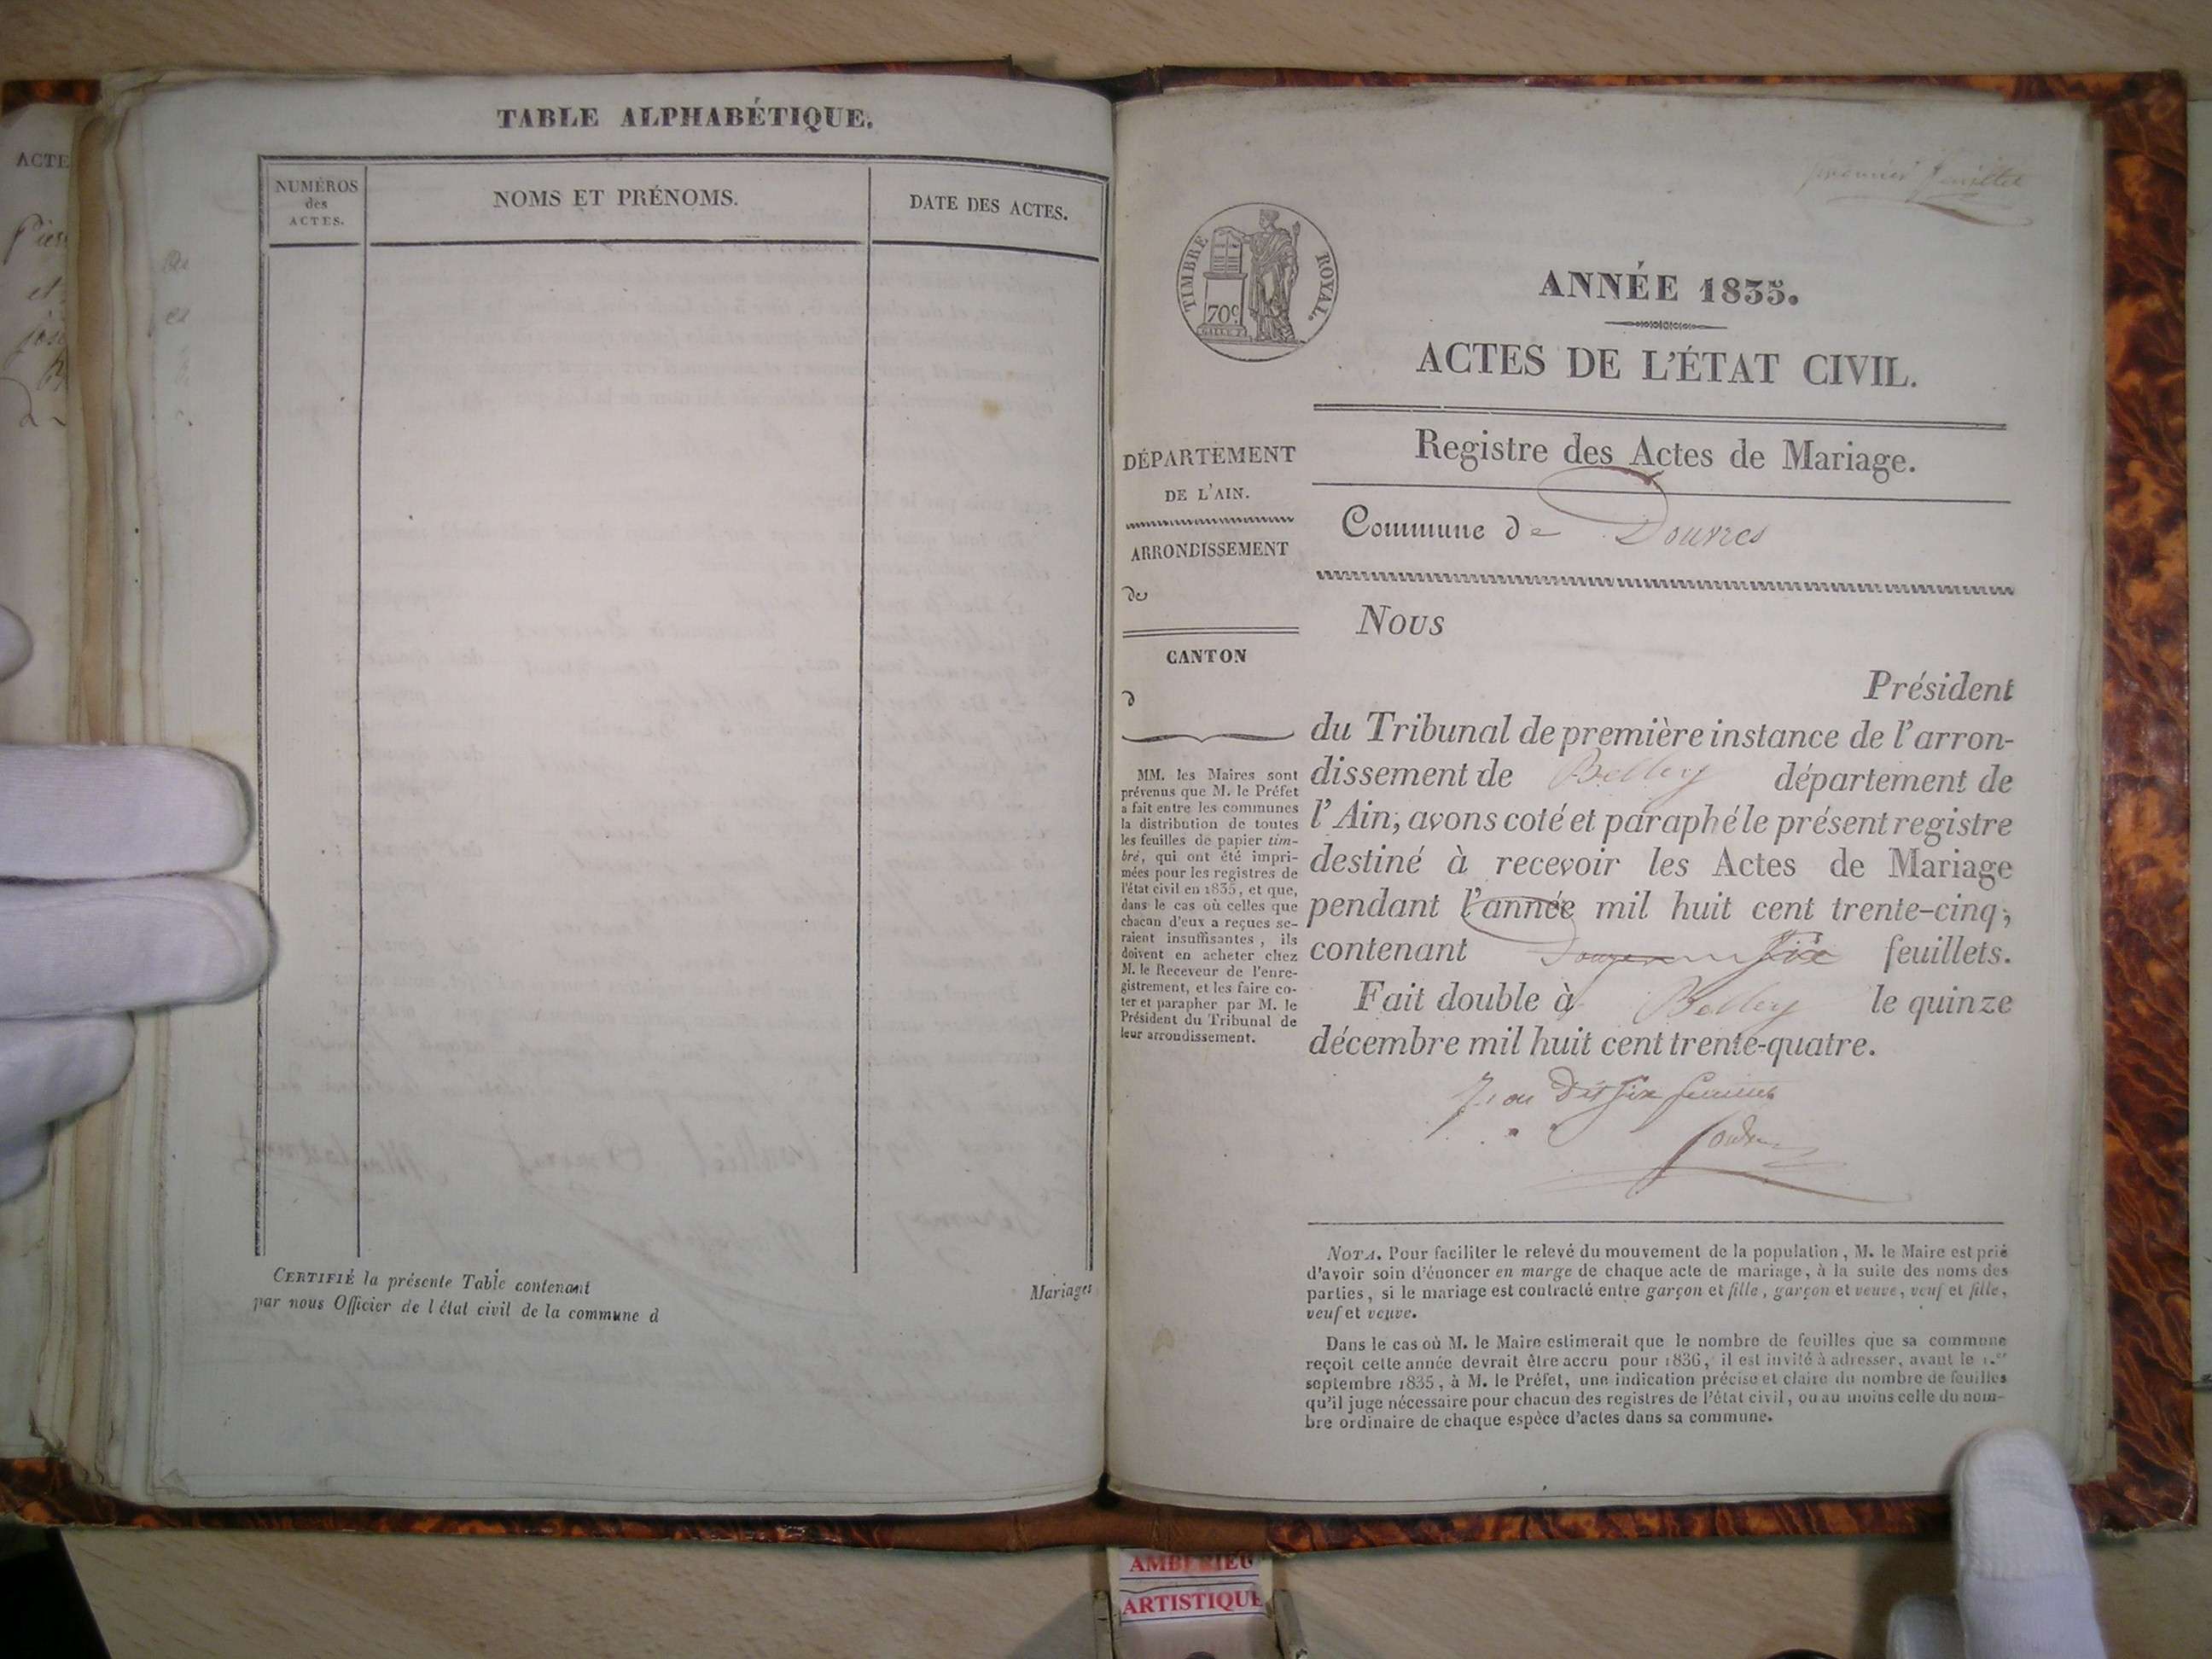 ACTE
TABLE ALPHABÉTIQUE.
NUMÉROS
des
ACTES.
NOMS ET PRÉNOMS.
DATE DES ACTES.
CERTIFIÉ la présente Table contenant
Mariages
par nous Officier de l'état civil de la commune d
premier feuillet
TIMBRE ROYAL.
70c
ANNÉE 1835.
ACTES DE L'ÉTAT CIVIL.
Registre des Actes de Mariage.
Commune de Douvres
DÉPARTEMENT
DE L'AIN.
ARRONDISSEMENT
de
CANTON
d
MM. les Maires sont
prévenus que M. le Préfet
a fait entre les communes
la distribution de toutes
les feuilles de papier tim-
bré, qui ont été impri-
mées pour les registres de
l'état civil en 1835, et que,
dans le cas où celles que
chacun d'eux a reçues se-
raient insuffisantes, ils
doivent en acheter chez
M. le Receveur de l'enre-
gistrement, et les faire co-
ter et parapher par M. le
Président du Tribunal de
leur arrondissement.
Nous
Président
du Tribunal de première instance de l'arron-
dissement de Belley département de
l'Ain, avons coté et paraphé le présent registre
destiné à recevoir les Actes de Mariage
pendant l'année mil huit cent trente-cinq,
contenant Six feuillets.
Fait double à Belley le quinze
décembre mil huit cent trente-quatre.
NOTA. Pour faciliter le relevé du mouvement de la population, M. le Maire est prié
d'avoir soin d'énoncer en marge de chaque acte de mariage, à la suite des noms des
parties, si le mariage est contracté entre garçon et fille, garçon et veuve, veuf et fille,
veuf et veuve.
Dans le cas où M. le Maire estimerait que le nombre de feuilles que sa commune
reçoit cette année devrait être accru pour 1836, il est invité à adresser, avant le 1.er
septembre 1835, à M. le Préfet, une indication précise et claire du nombre de feuilles
qu'il juge nécessaire pour chacun des registres de l'état civil, ou au moins celle du nom-
bre ordinaire de chaque espèce d'actes dans sa commune.
AMBERIEU
ARTISTIQUE